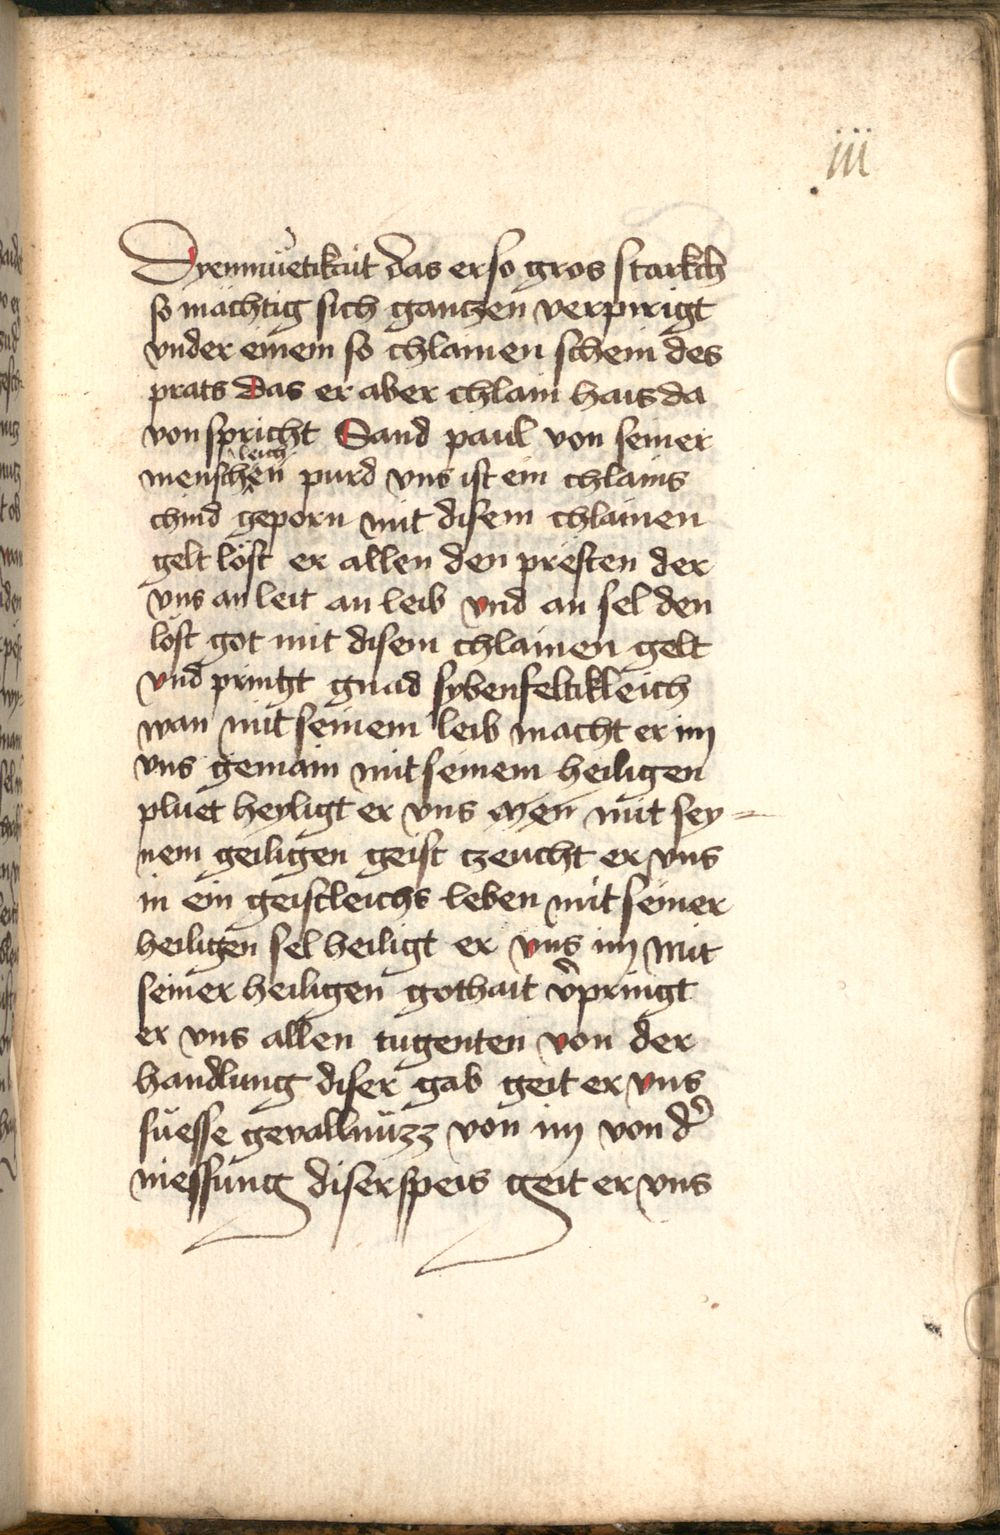 iii
Dyemuetikait das er so gros starkch
so mächtig sich ganczen verpirigt
vnder einem so chlainen schein des
prats Das er aber chlain hais da
von spricht Sand paul von seiner
leich
menschen purd vns ist ein chlains
chind geporn mit disem chlainen
gelt löst er allen den presten der
vns an leit an leib vnd an sel den
löst got mit disem chlainen gelt
vnd pringt gnad sybenfeltikleich
wan mit seinem leib macht er im
vns gemain mit seinem heiligen
pluet heyligt er vns mit sey=
nem geiligen geist czeucht er vns
in ein geistleichs leben mit seiner
heiligen sel heiligt er vns im Mit
seiner heiligen gothait v̉pringt
er vns allen tugenten von der
handlung diser gab geit er vns
süesse gevallnüzz von im von d̉
niessung diser speis geit er vns